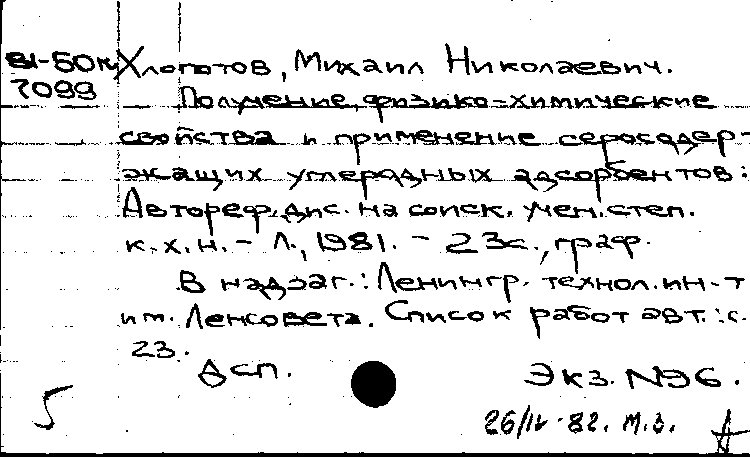 81-50к Хлопотов, Михаил Николаевич.
7099
Получение, физико-химические
свойства и применение серосодер-
жащих углеродных адсорбентов:
Автореф. дис. на соиск. учен. степ.
к.х.н. - Л., 1981. - 23с., граф.
В надзаг.: Ленингр. технол. ин-т
им. Ленсовета. Список работ авт.: с.
23.
ДСП.
Экз. N96.
5
26/IV-82. М.З.